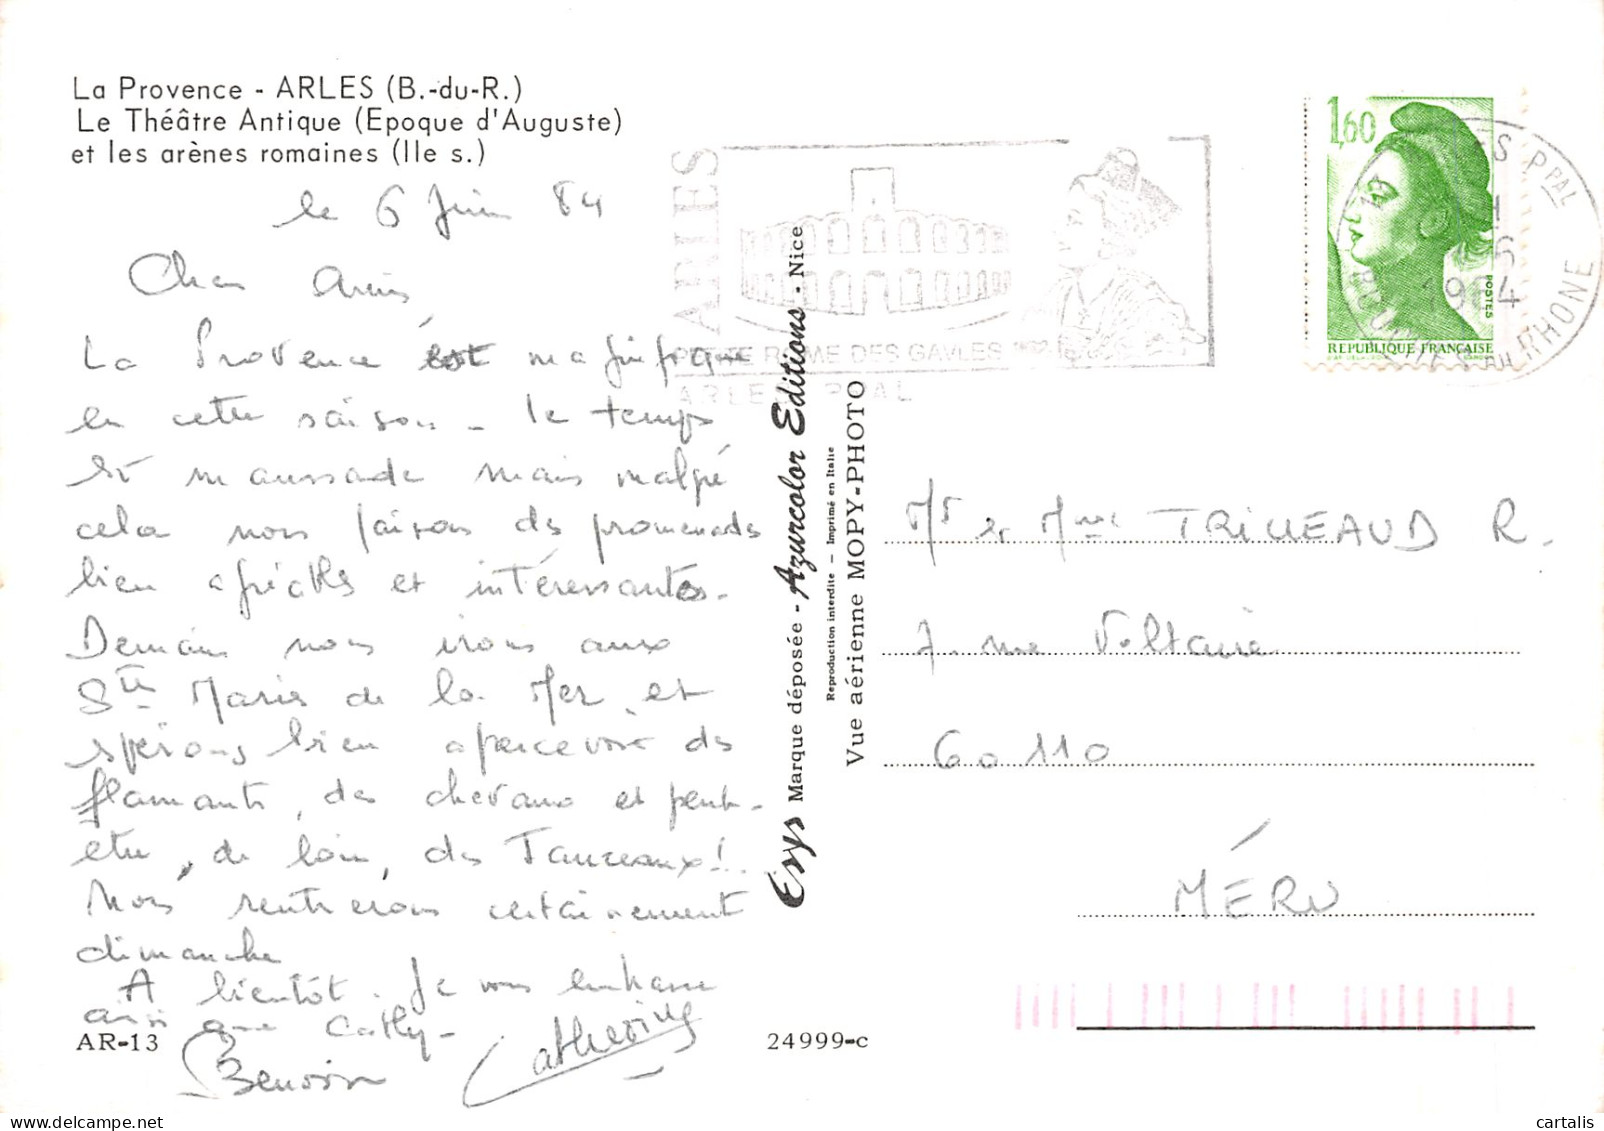 La Provence - ARLES (B.-du-R.)
Le Théâtre Antique (Epoque d'Auguste)
et les arènes romaines (IIe s.)
le 6 Juin 84
Chers Amis
La Provence est magnifique
en cette saison - le temps
est maussade mais malgré
cela nous faisons des promenades
bien agréables et intéressantes.
Demain nous irons aux
Stes Maries de la Mer et
espérons bien apercevoir des
flamants, des chevaux et peut-
etre, de loin, des Taureaux!
Nous rentrerons certainement
dimanche
A bientôt. Je vous embrasse
ainsi que Cathy -
Catherine
AR-13
24999-c
Esys Marque déposée - Azurcolor Editions - Nice
Reproduction interdite - Imprimé en Italie
Vue aérienne MOPY-PHOTO
ARLES
PETITE ROME DES GAULES
ARLES PPAL
1,60
POSTES
REPUBLIQUE FRANÇAISE
S PPAL
6
1984
RHONE
Mr & Mme TRILLEAUD R.
7. rue Voltaire
60110
MÉRU
cartalis
delcampe.net